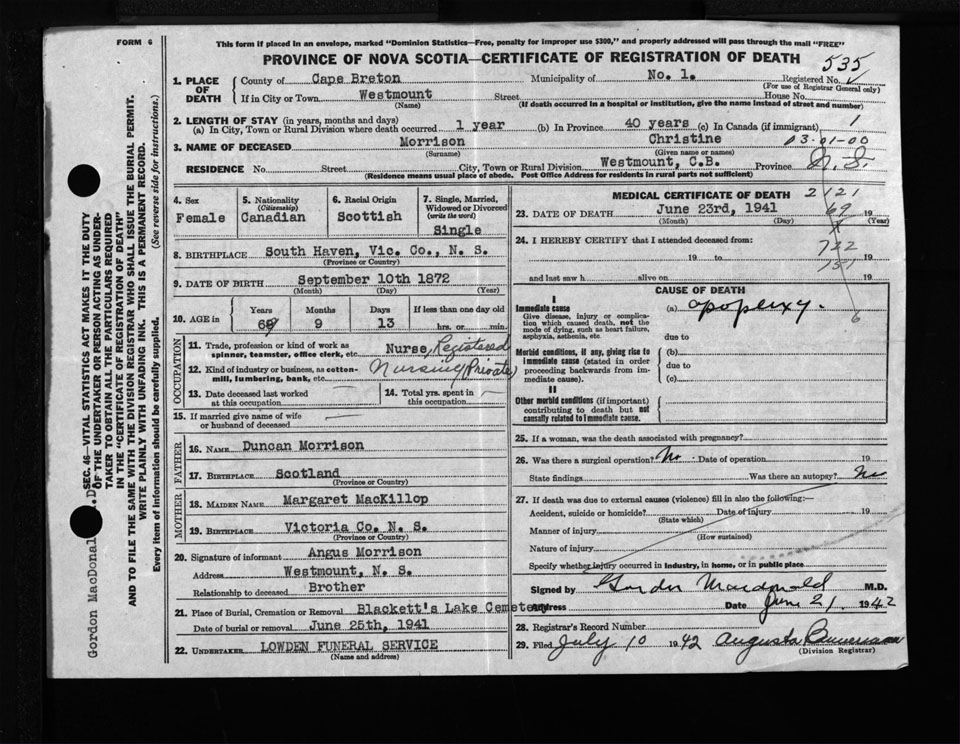 FORM 6
This form if placed in an envelope, marked "Dominion Statistics—Free, penalty for improper use $300," and properly addressed will pass through the mail "FREE"
PROVINCE OF NOVA SCOTIA—CERTIFICATE OF REGISTRATION OF DEATH
535
1. PLACE OF DEATH
County of Cape Breton Municipality of No. 1. Registered No.
(For use of Registrar General only)
If in City or Town Westmount Street House No.
(Name) (If death occurred in a hospital or institution, give the name instead of street and number)
2. LENGTH OF STAY (in years, months and days)
(a) In City, Town or Rural Division where death occurred 1 year (b) In Province 40 years (c) In Canada (if immigrant) 1
3. NAME OF DECEASED Morrison Christine 03-01-00
(Surname) (Given name or names)
RESIDENCE No. Street City, Town or Rural Division Westmount, C.B. Province N. S.
(Residence means usual place of abode. Post Office Address for residents in rural parts not sufficient)
4. Sex Female
5. Nationality (Citizenship) Canadian
6. Racial Origin Scottish
7. Single, Married, Widowed or Divorced (write the word) Single
8. BIRTHPLACE South Haven, Vic. Co., N. S.
(Province or Country)
9. DATE OF BIRTH September 10th 1872
(Month) (Day) (Year)
10. AGE in Years Months Days If less than one day old
9 13 hrs. or min.
OCCUPATION
11. Trade, profession or kind of work as spinner, teamster, office clerk, etc. Nurse, Registered
12. Kind of industry or business, as cotton-mill, lumbering, bank, etc. Nursing (Private)
13. Date deceased last worked at this occupation
14. Total yrs. spent in this occupation
15. If married give name of wife or husband of deceased
FATHER
16. NAME Duncan Morrison
17. BIRTHPLACE Scotland
(Province or Country)
MOTHER
18. MAIDEN NAME Margaret MacKillop
19. BIRTHPLACE Victoria Co. N. S.
(Province or Country)
20. Signature of informant Angus Morrison
Address Westmount, N. S.
Relationship to deceased Brother
21. Place of Burial, Cremation or Removal Blackett's Lake Cemetery
Date of burial or removal June 25th, 1941
22. UNDERTAKER LOWDEN FUNERAL SERVICE
(Name and address)
MEDICAL CERTIFICATE OF DEATH 2121
23. DATE OF DEATH June 23rd, 1941 69 19
(Month) (Day) (Year)
24. I HEREBY CERTIFY that I attended deceased from:
19 to 722 19
and last saw h alive on 751 19
CAUSE OF DEATH
I
Immediate cause (a) apoplexy.
Give disease, injury or complication which caused death, not the mode of dying, such as heart failure, asphyxia, asthenia, etc.
6
due to
Morbid conditions, if any, giving rise to immediate cause (stated in order proceeding backwards from immediate cause).
(b)
due to
(c)
II
Other morbid conditions (if important) contributing to death but not causally related to immediate cause.
25. If a woman, was the death associated with pregnancy?
26. Was there a surgical operation? No. Date of operation 19
State findings Was there an autopsy? No
27. If death was due to external causes (violence) fill in also the following:—
Accident, suicide or homicide? Date of injury 19
(State which)
Manner of injury
(How sustained)
Nature of injury
Specify whether injury occurred in industry, in home, or in public place
Signed by Gordon Macdonald M.D.
Address Date June 21. 1942
28. Registrar's Record Number
29. Filed July 10 1942 Augusta Bannerman
(Division Registrar)
SEC. 46—VITAL STATISTICS ACT MAKES IT THE DUTY
OF THE UNDERTAKER OR PERSON ACTING AS UNDER-
TAKER TO OBTAIN ALL THE PARTICULARS REQUIRED
IN THE "CERTIFICATE OF REGISTRATION OF DEATH"
AND TO FILE THE SAME WITH THE DIVISION REGISTRAR WHO SHALL ISSUE THE BURIAL PERMIT.
WRITE PLAINLY WITH UNFADING INK. THIS IS A PERMANENT RECORD.
Every item of information should be carefully supplied. (See reverse side for instructions.)
Gordon MacDonald